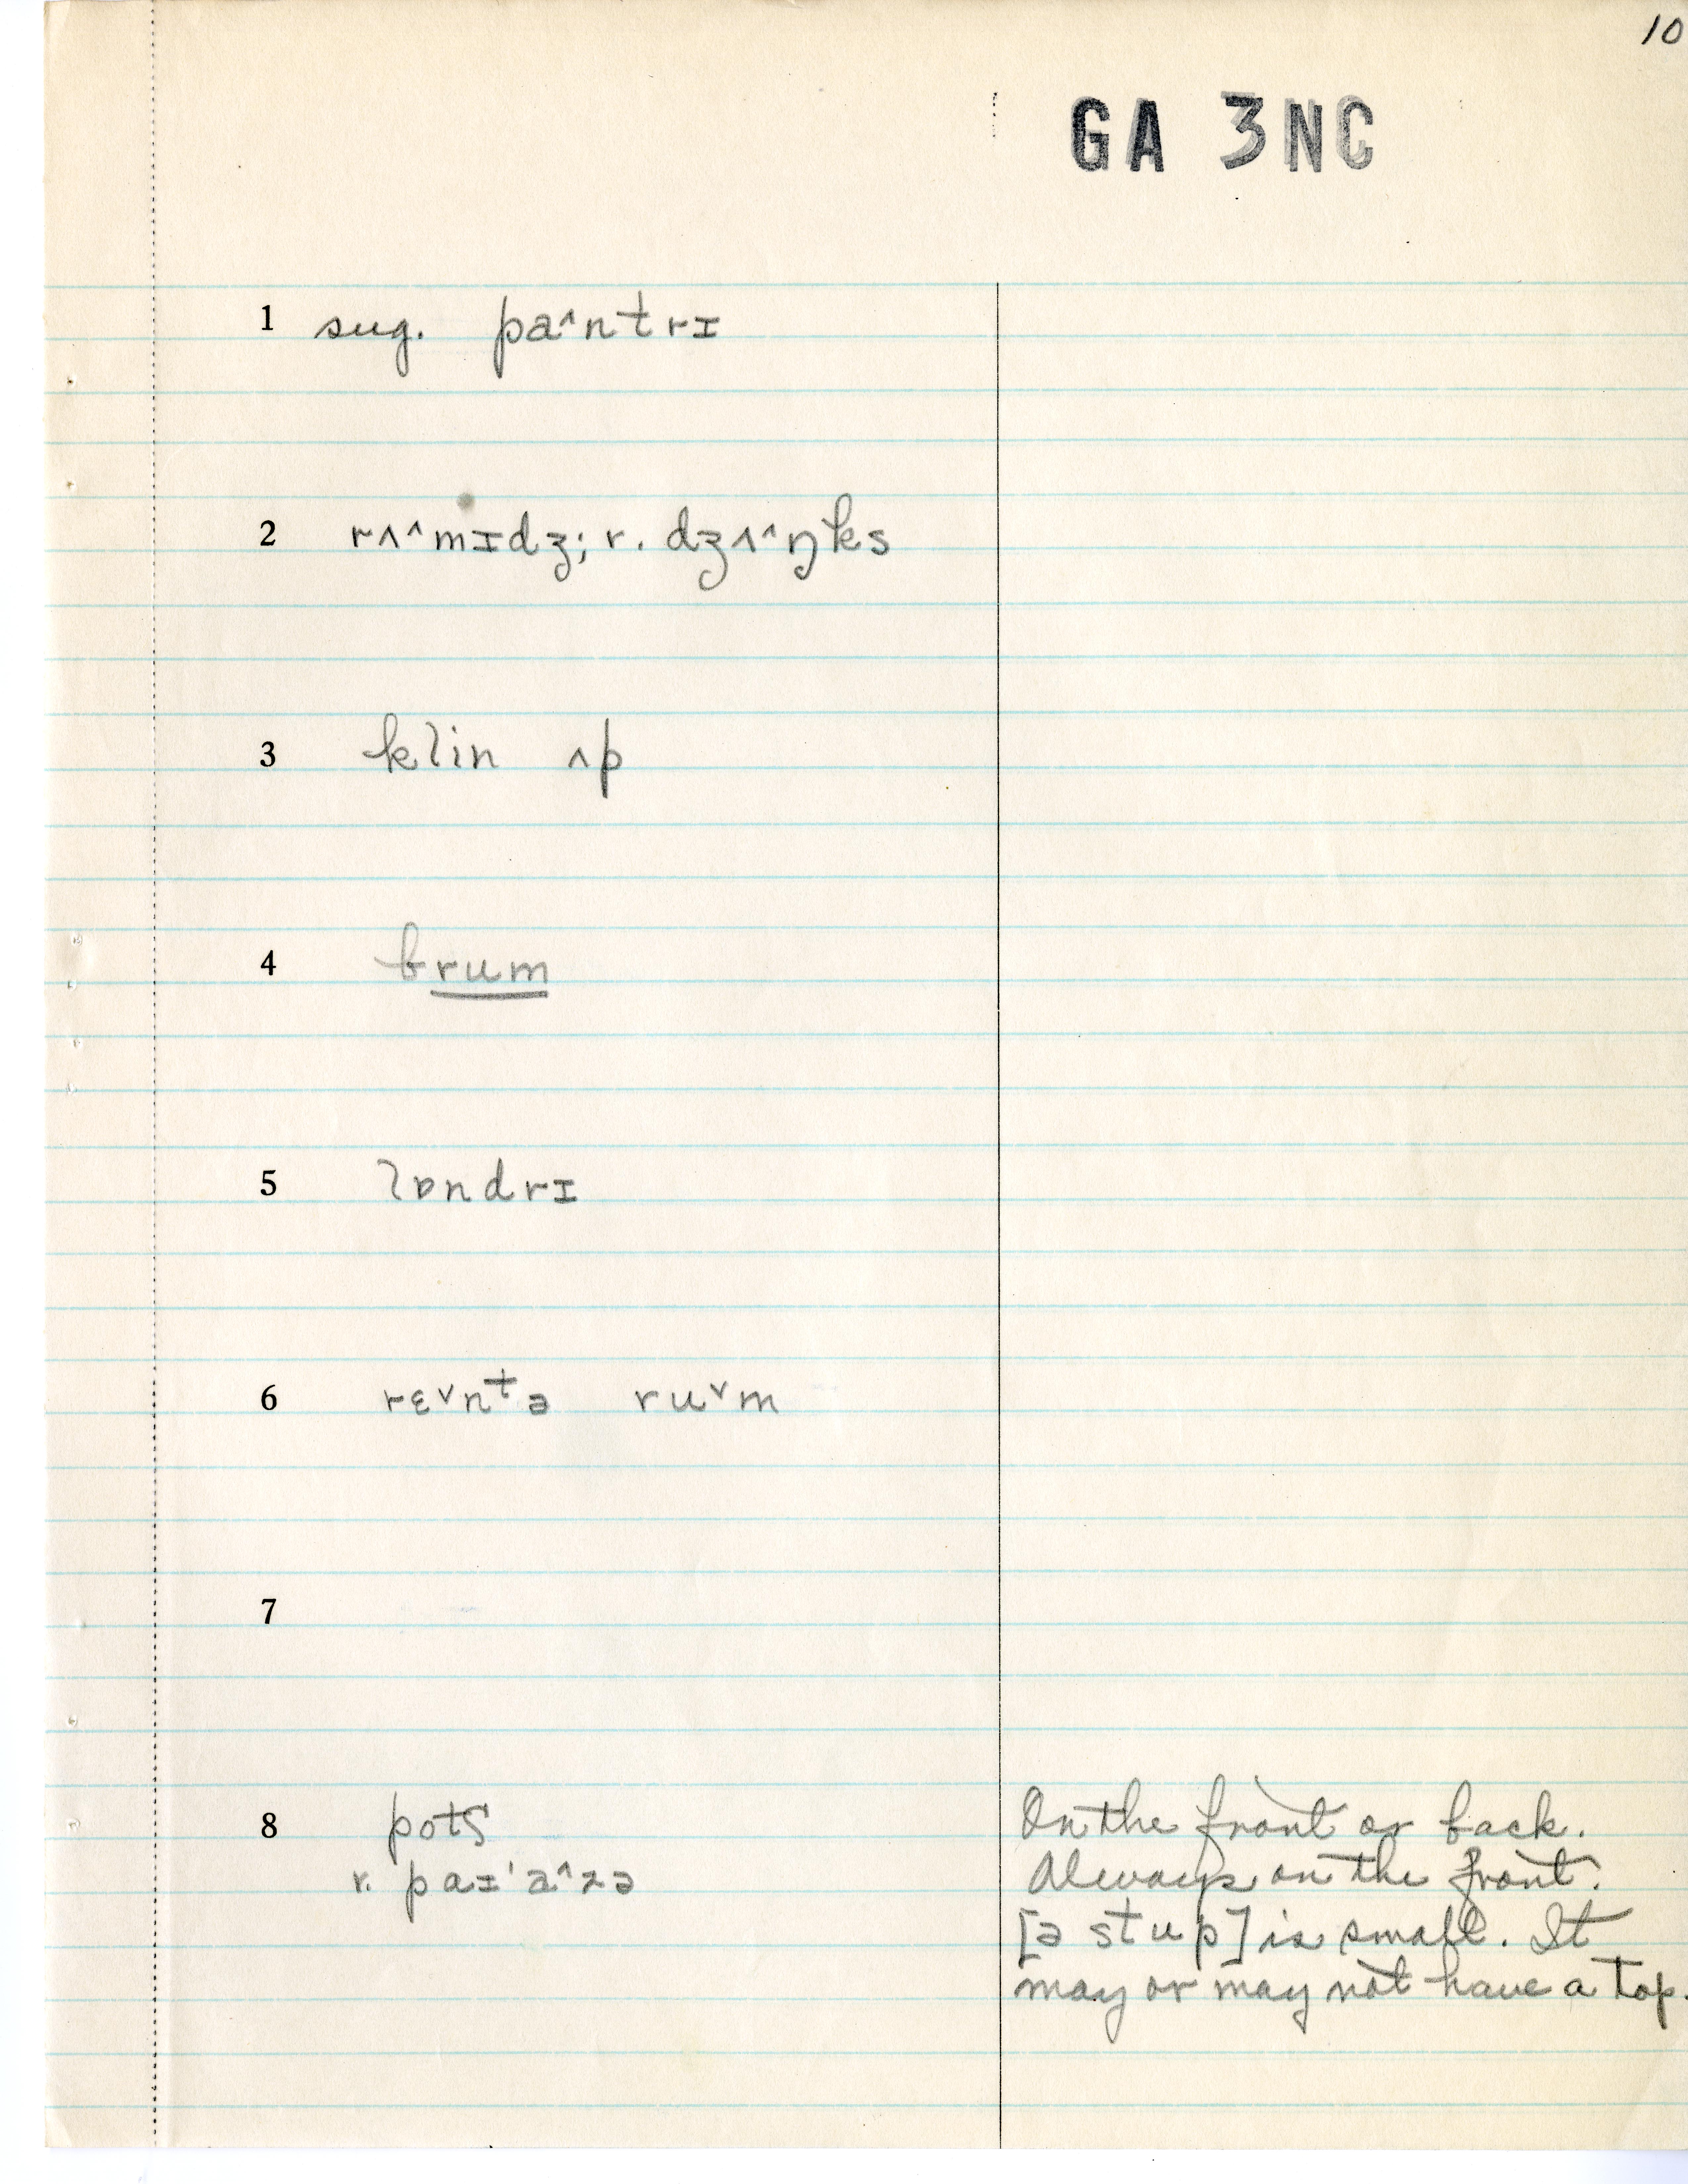 10
GA 3NC
1 sug. pa^ntrɪ
2 rʌ^mɪdʒ; r. dʒʌ^ŋks
3 klin ʌp
4 brum
5 lɒndrɪ
6 rɛ˅nᵗə ru˅m
7
8 potʃ
On the front or back.
r. paɪ'a^zə
Always on the front.
[ə stup] is small. It
may or may not have a top.